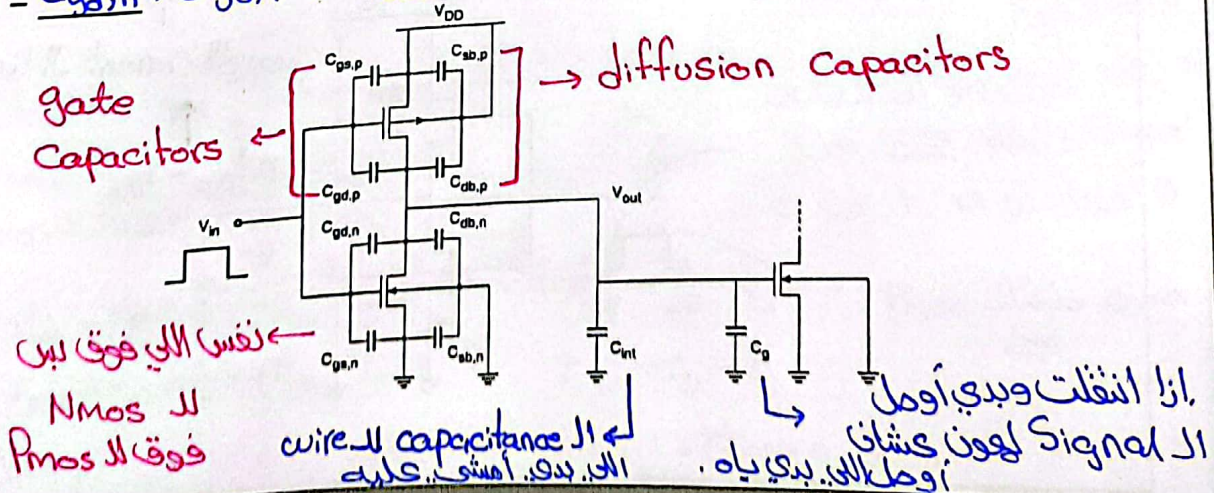 V_DD
C_gs,p
C_sb,p
→ diffusion Capacitors
gate
Capacitors ←
C_gd,p
C_db,p
V_out
V_in
C_gd,n
C_db,n
C_gs,n
C_sb,n
C_int
C_g
نفس اللي فوق بس ←
لل Nmos
فوق لل Pmos
ال capacitance لل wire
اللي بدي أمشي عليه
إذا انتقلت وبدي أوصل
ال Signal لهون عشان
أوصل اللي بدي ياه.